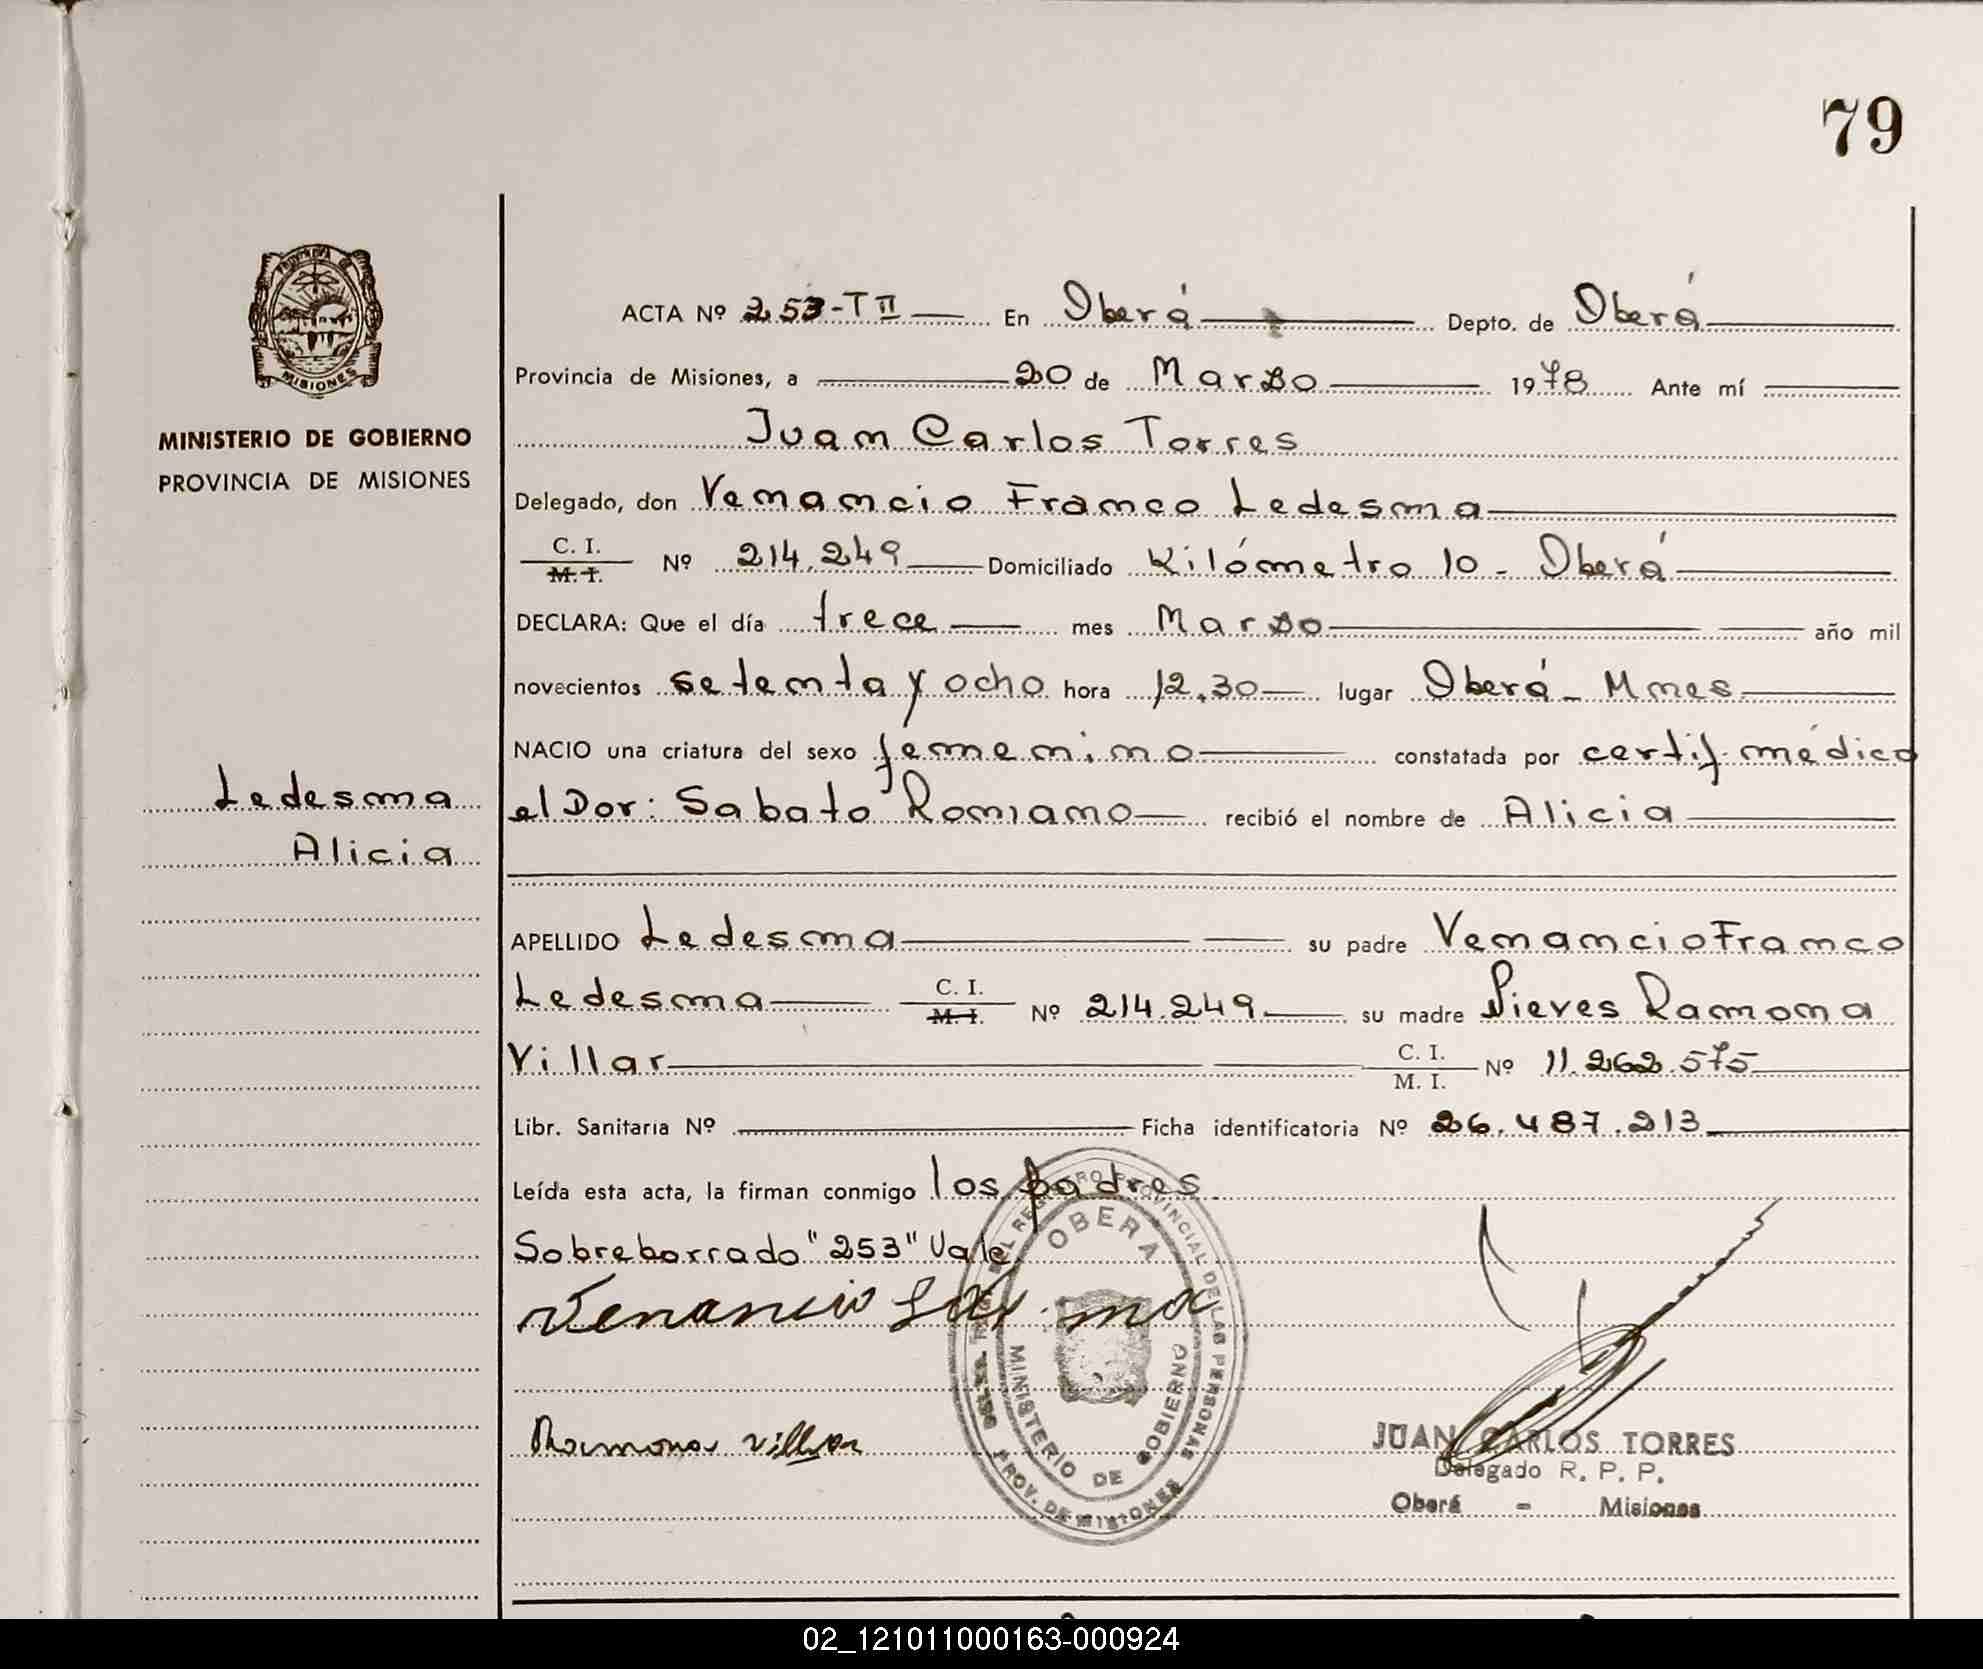 79
PROVINCIA DE
MISIONES
MINISTERIO DE GOBIERNO
PROVINCIA DE MISIONES
Ledesma
Alicia
ACTA Nº 253-T II En Oberá Depto. de Oberá
Provincia de Misiones, a 20 de Marzo 1978 Ante mí
Juan Carlos Torres
Delegado, don Venancio Franco Ledesma
C. I.
M. I. Nº 214.249 Domiciliado Kilómetro 10 - Oberá
DECLARA: Que el día trece mes Marzo año mil
novecientos setenta y ocho hora 12,30 lugar Oberá - Mnes
NACIO una criatura del sexo femenino constatada por certif. médico
el Dor: Sabato Romano recibió el nombre de Alicia
APELLIDO Ledesma su padre Venancio Franco
Ledesma C. I.
M. I. Nº 214.249 su madre Nieves Ramona
Villar C. I.
M. I. Nº 11.262.575
Libr. Sanitaria Nº Ficha identificatoria Nº 26.487.213
Leída esta acta, la firman conmigo los padres.
Sobreborrado "253" Vale
Venancio Ledesma
Ramona Villar
REGISTRO PROVINCIAL DE LAS PERSONAS
OBERA
MINISTERIO DE GOBIERNO
PROV. DE MISIONES
JUAN CARLOS TORRES
Delegado R. P. P.
Oberá - Misiones
02_121011000163-000924